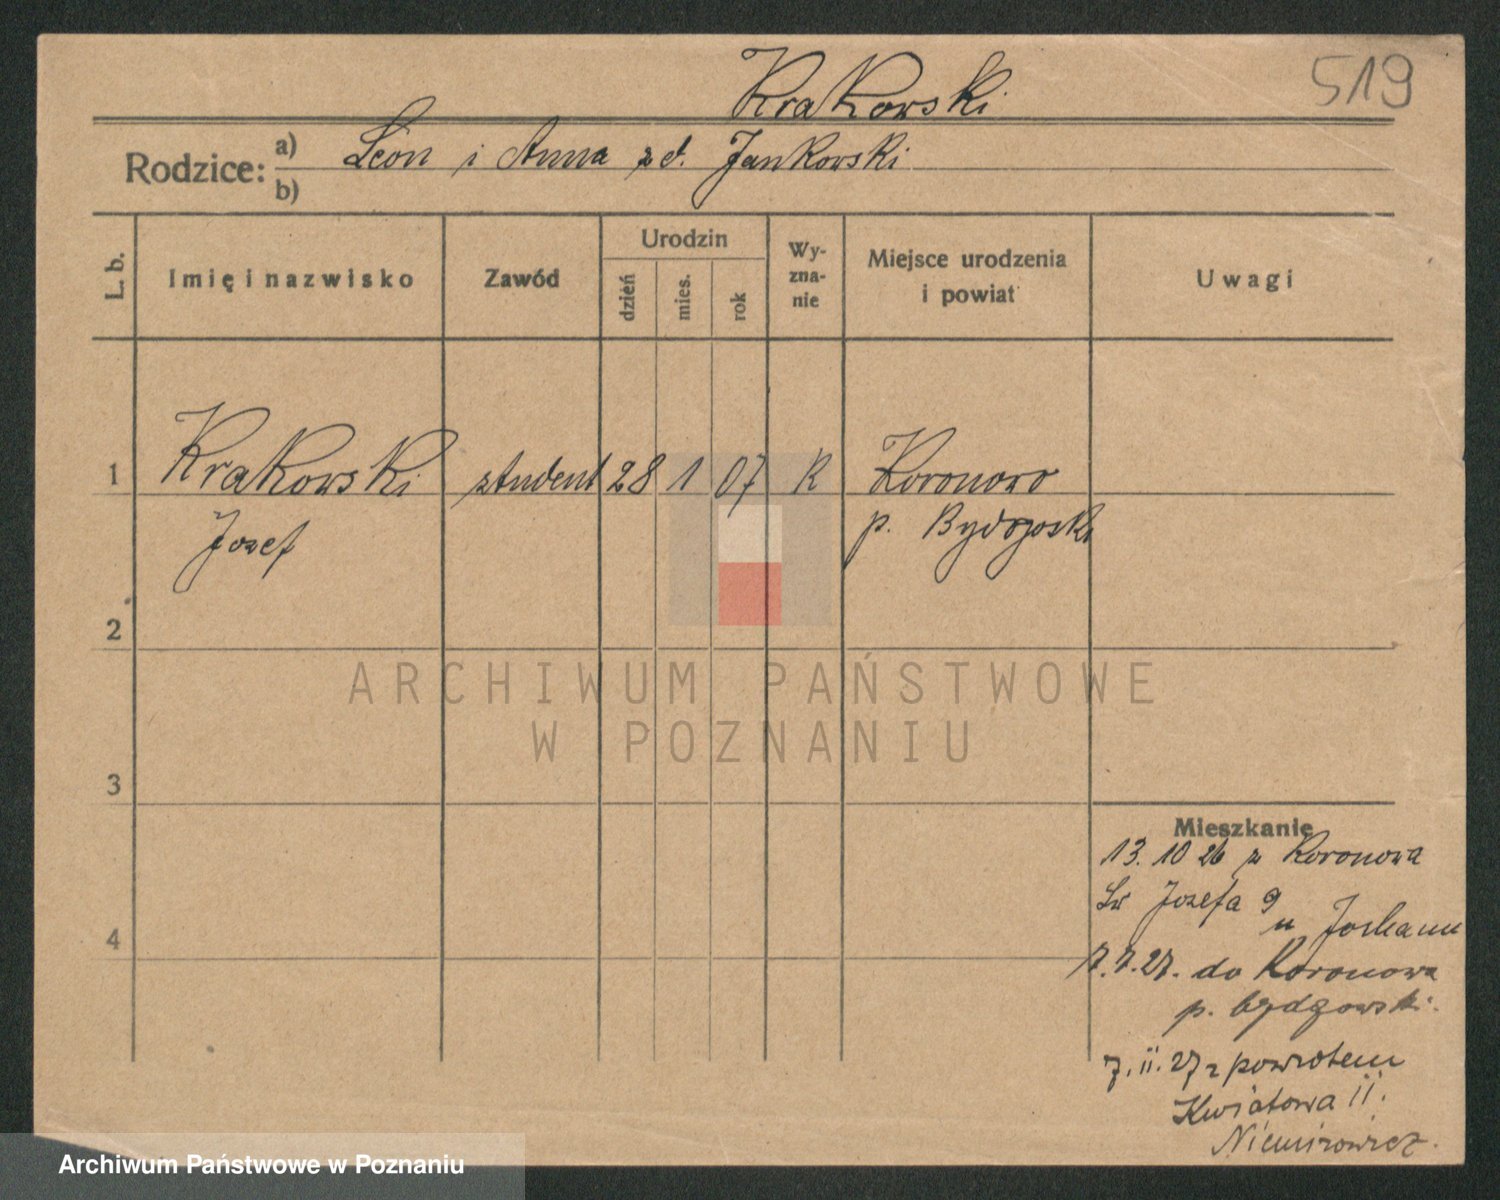 Krakowski
519
Rodzice: a) Leon i Anna zd. Jankowski
b)
L. b.
Imię i nazwisko
Zawód
Urodzin
dzień
mies.
rok
Wy-
zna-
nie
Miejsce urodzenia
i powiat
Uwagi
1 Krakowski student 28 1 07 R Koronowo
Jozef p. Bydgoski
2
3
4
Mieszkanie
13. 10 26 z Koronowa
Św Jozefa 9
u
7.7.27. do Koronowa
p. bydgowski.
7. ii. 27 z powrotem
Kwiatowa ii.
Niemirowicz.
ARCHIWUM PAŃSTWOWE
W POZNANIU
Archiwum Państwowe w Poznaniu